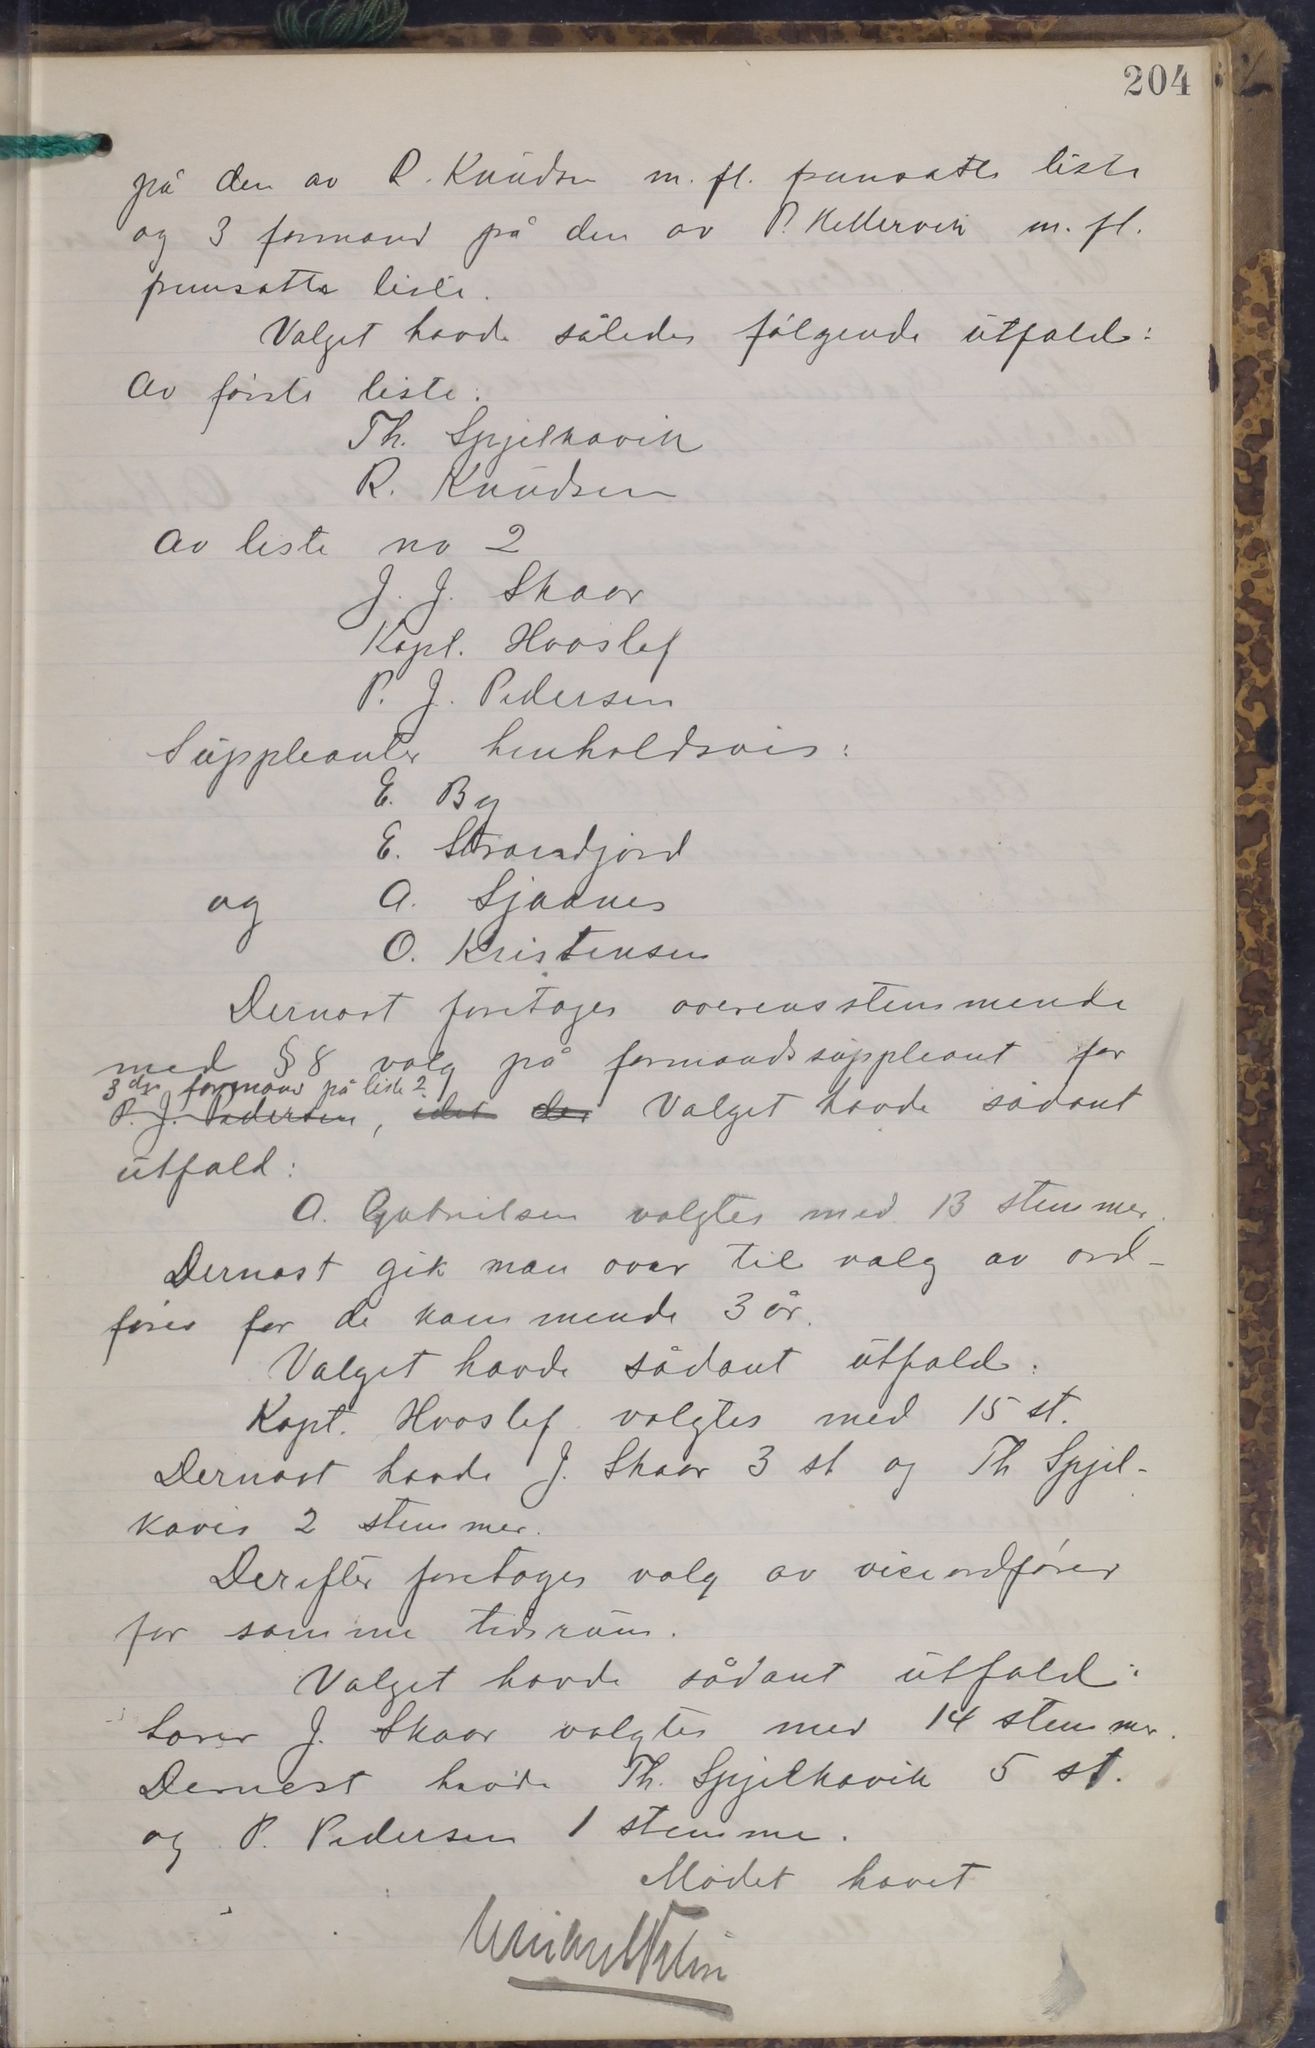 204
på den av R. Knudsen m. fl. fremsatte liste
og 3 formænd på den av P. Hellervik m. fl.
fremsatte liste.
Valget havde således følgende utfald:
Av første liste:
Th. Spjelkavik
R. Knudsen
Av liste no 2
J. J. Skaar
Kapt. Hvoslef
P. J. Pedersen
Suppleanter henholdsvis:
E. By
E. Strandjord
og A. Sjaanes
O. Kristensen
Dernæst foretoges overensstemmende
med § 8 valg på formandssuppleant for
3die formand på liste 2
P. J. Pedersen, idet der Valget havde sådant
utfald:
A. Gabrielsen valgtes med 13 stemmer.
Dernæst gik man over til valg av ord-
fører for de kommende 3 år.
Valget havde sådant utfald:
Kapt. Hvoslef valgtes med 15 st.
Dernæst havde J. Skaar 3 st og Th Spjel-
kavik 2 stemmer.
Derefter foretoges valg av viceordfører
for samme tidsrum.
Valget havde sådant utfald:
Lærer J. Skaar valgtes med 14 stemmer.
Dernest havde Th. Spjelkavik 5 st.
og P. Pedersen 1 stemme.
Mødet hævet